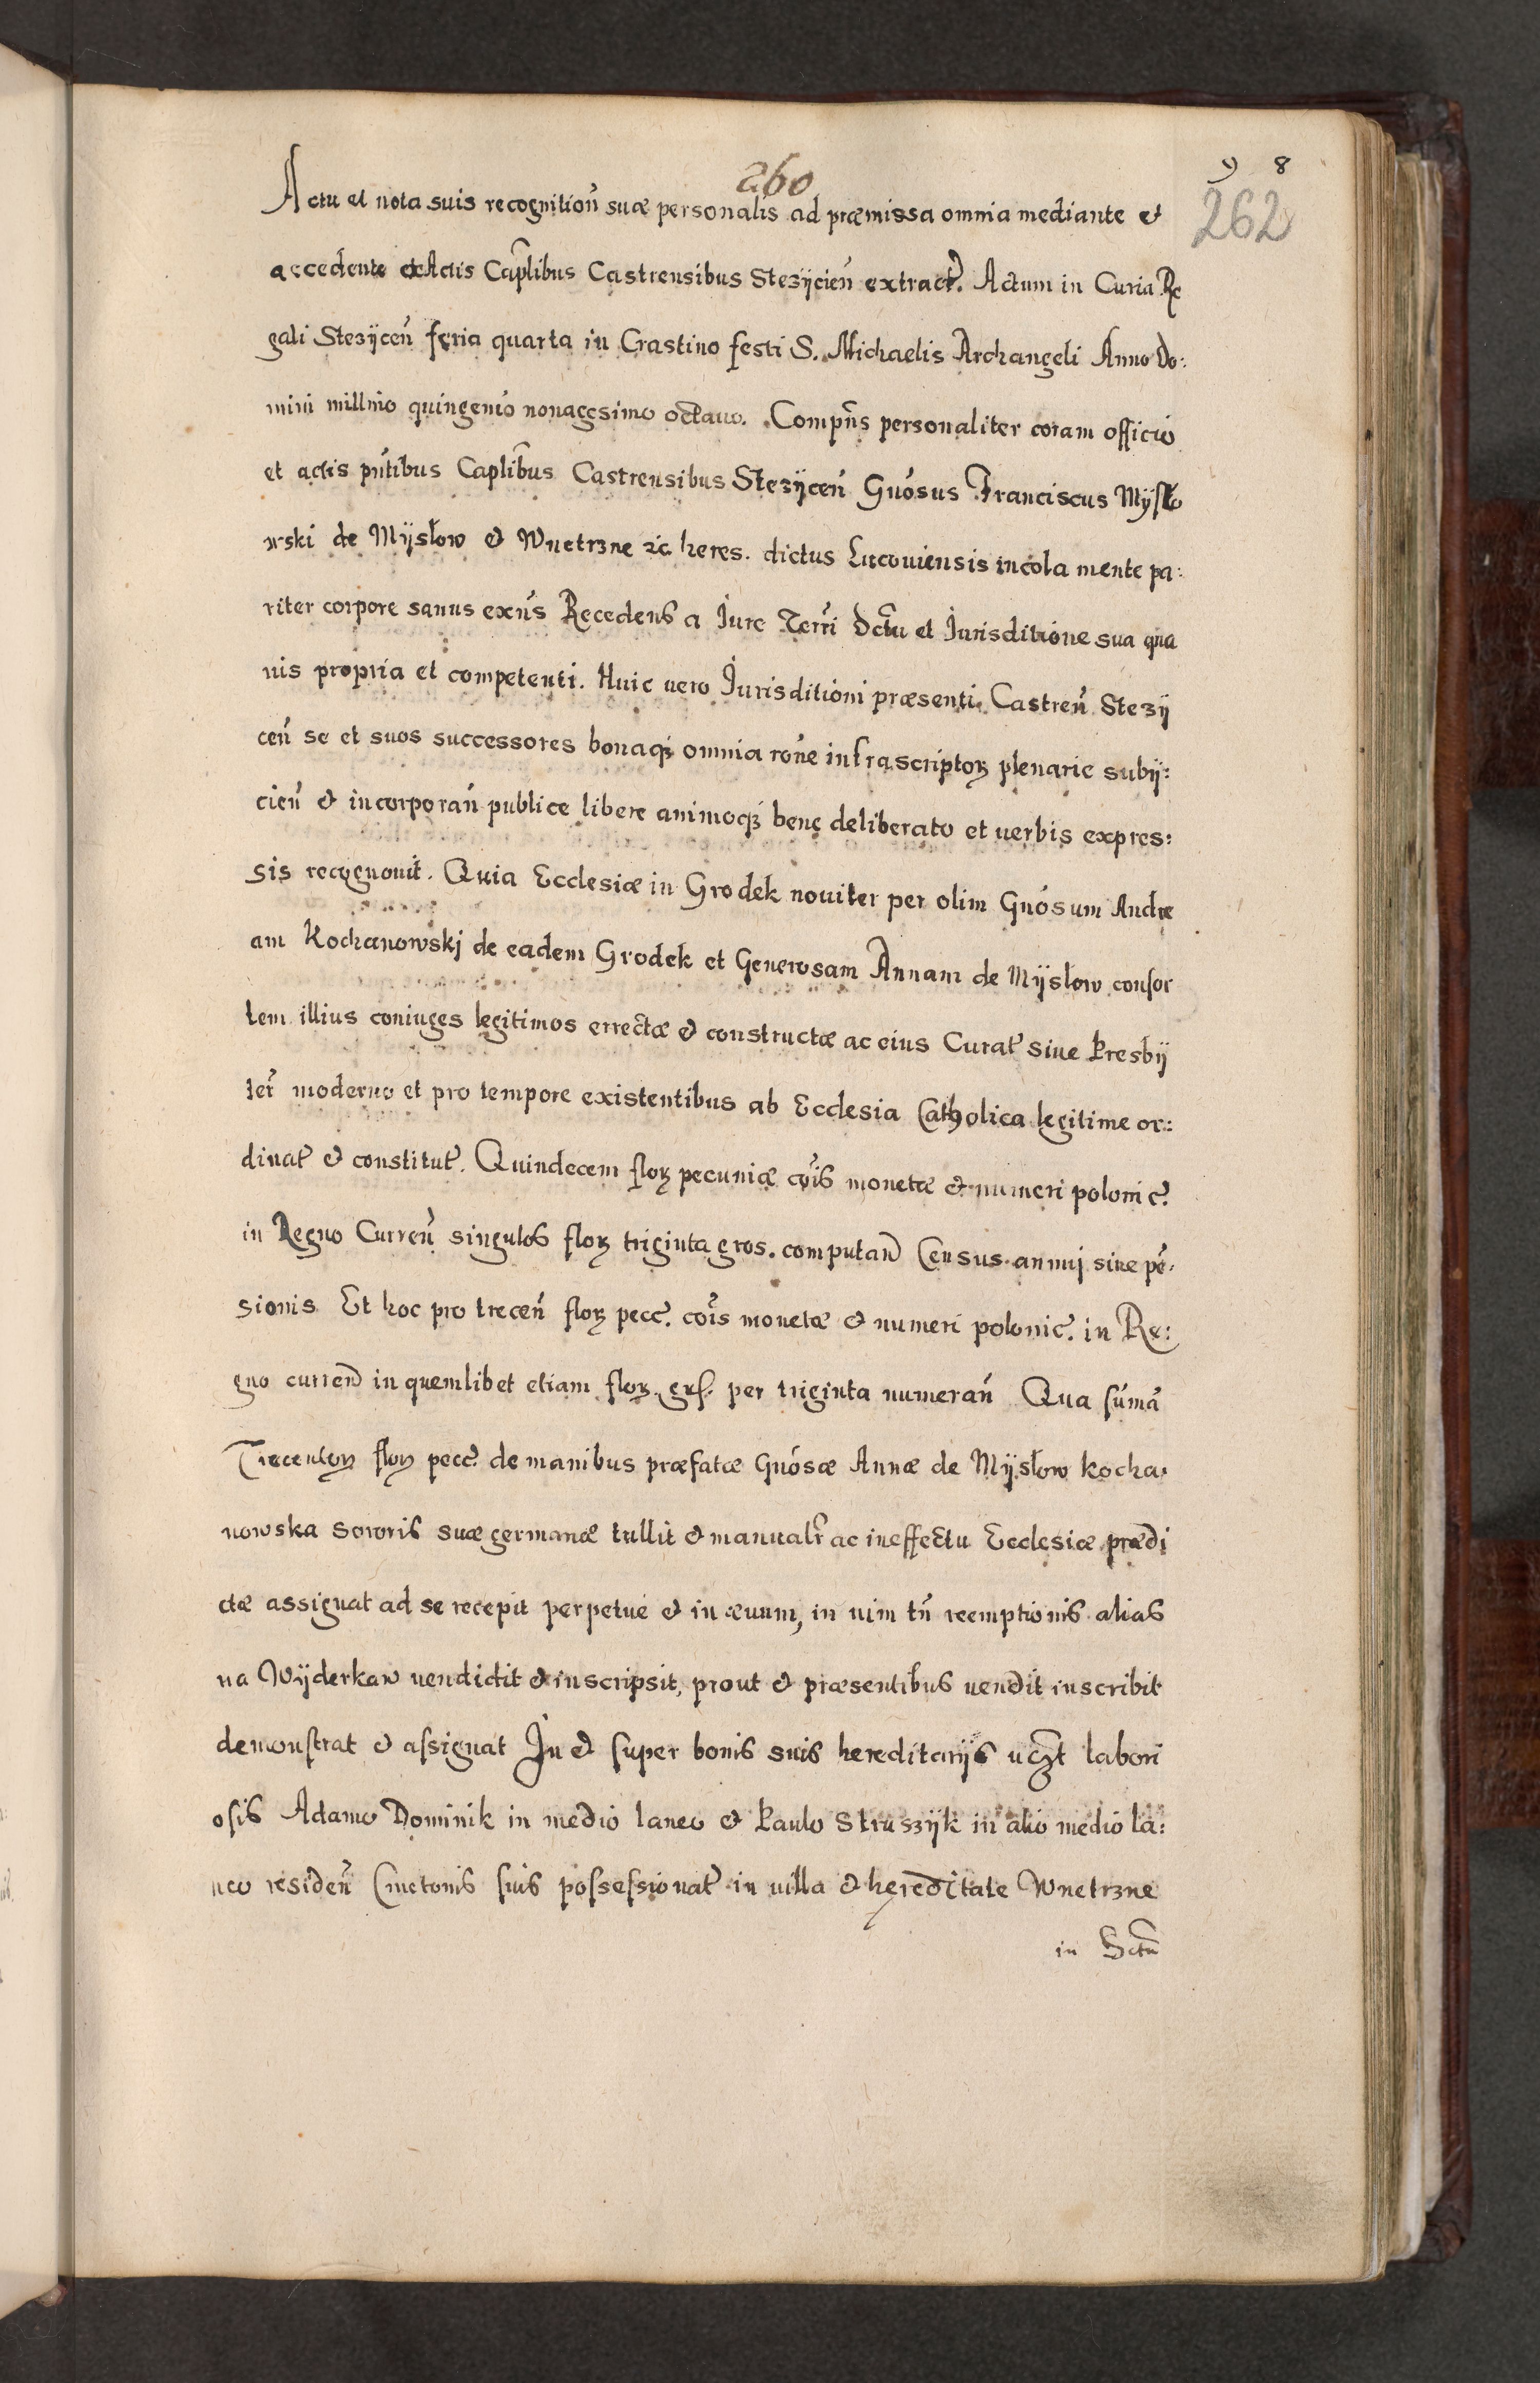 260
9 8
262
Actu et nota suis recognitioñ suæ personalis ad præmissa omnia mediante et
accedente ex Actis Cap̃libus Castrensibus Stezÿcieñ extract̃. Actum in Curia Re
gali Stezÿceñ feria quarta in Crastino festi S. Michaelis Archangeli Anno Do:
mini millmo quingeño nonagesimo octauo. Comp̃ns personaliter coram officio
et actis pñtibus Cap̃libus Castrensibus Stezÿceñ Gnõsus Franciscus Mÿsło
wski de Mÿsłow et Wnetrzne &c. heres. dictus Lucouiensis incola mente pa:
riter corpore sanus exñs Recedens a Jure Terrĩ Dc̃tu et Jurisditione sua qua
uis propria et competenti. Huic uero Jurisditioni præsenti Castreñ Stezÿ
ceñ se et suos successores bonaqꝫ omnia rõne infrascriptoꝝ plenarie subÿ:
cieñ et incorporañ publice libere animoqꝫ bene deliberato et uerbis expres:
sis recognouit. Quia Ecclesiæ in Grodek nouiter per olim Gnõsum Andre
am Kochanowskj de eadem Grodek et Generosam Annam de Mÿsłow consor
tem illius coniuges legitimos errectæ et constructæ ac eius Curat̃ siue Presbÿ
ter̃ moderno et pro tempore existentibus ab Ecclesia Catholica legitime or:
dinat̃ et constitut̃. Quindecem floꝝ pecuniæ cõis monetæ et numeri polonic̃.
in Regno Curreñ singulos floꝝ triginta gros. computañ Census annuj siue pẽ:
sionis Et hoc pro treceñ floꝝ pecc̃. cõis monetæ et numeri polonic̃. in Re:
gno curreñ in quemlibet etiam floꝝ. grs̃. per triginta numerañ Qua sũma
Trecentoꝝ floꝝ pecc̃. de manibus præfatæ Gnõsæ Annæ de Mÿsłow Kocha:
nowska Sororis suæ germanæ tullit et manualr̃ ac in effectu Ecclesiæ prædi
ctæ assignat ad se recepit perpetue et in æuum, in uim tñ reemptionis alias
na Wÿderkaw uendidit et inscripsit, prout et præsentibus uendit inscribit
demonstrat et assignat In et super bonis suis hereditarijs uꝫt labori
osis Adamo Dominik in medio laneo et Paulo Struszÿk in alio medio la:
neo resideñ Cmetonis suis possessionat̃ in uilla et hereditate Wnetrzne
in Dc̃tu